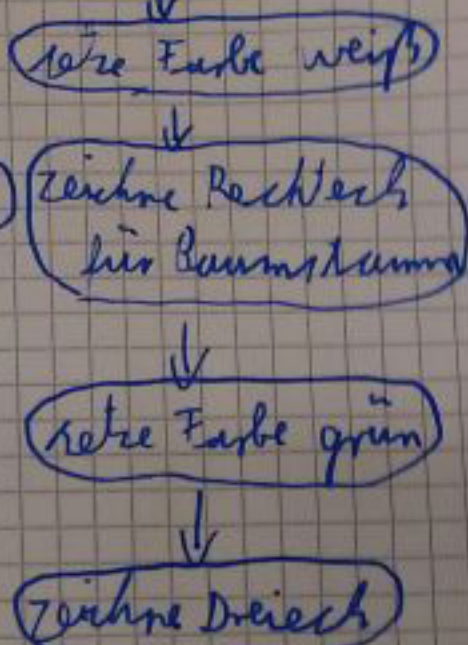 setze Farbe weiß
zeichne Rechteck
für Baumstamm
setze Farbe grün
zeichne Dreieck